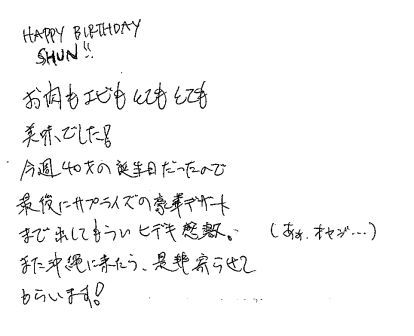 HAPPY BIRTHDAY
SHUN!!
お肉もエビもとてもとても
美味でした!
今週40才の誕生日だったので
最後にサプライズの豪華デザート
まで出してもらいヒデキ感激。 (あぁ、オヤジ…)
また沖縄に来たら、是非寄らせて
もらいます!